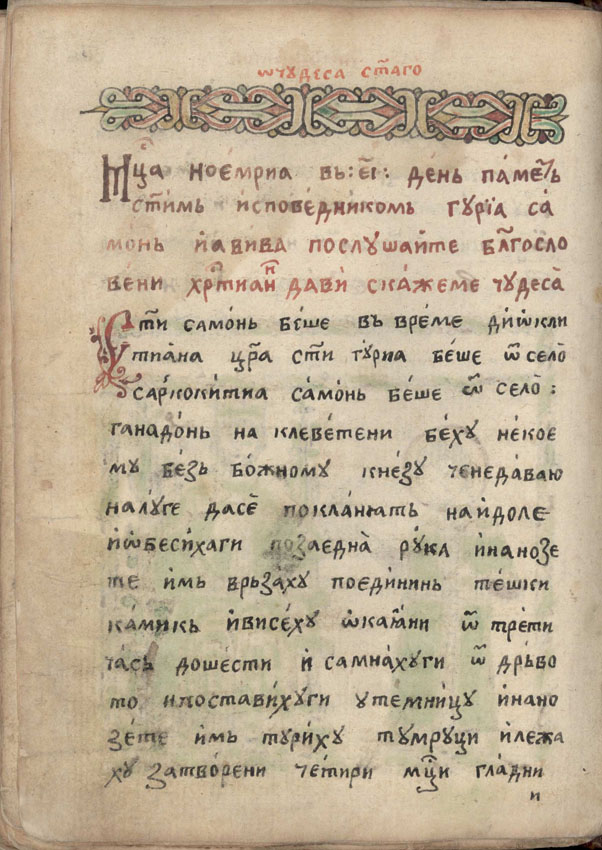 ѡчудеса ст҃аго
Мц҃а ноемриа въ:еі: день паметь
ст҃имь исповедникомь гурїа са
монь иавива послушаите бл҃госло
вени хрⷭ҇тиани дави скажеме чудеса
Ст҃и самонь беше въ време дїѡкли
тиана цр҃а ст҃и гуриа беше ѿ село
саркокитиа самонь беше ѿ село:
ганадонь на клеветени беху некое
му безь божному кнезу ченедаваю
налуге дасе покланꙗть наидоле
иѡбесихаги позаедна рука инанозе
те имь врьзаху поединнь тешки
камикь ивисеху ѡкаꙗни ѿ трети
чась дошести и самнахуги ѿ дрьво
то ипоставихуги утемницу инано
зете имь туриху тумруци илежа
ху затворени четири мц҃и гладни
и